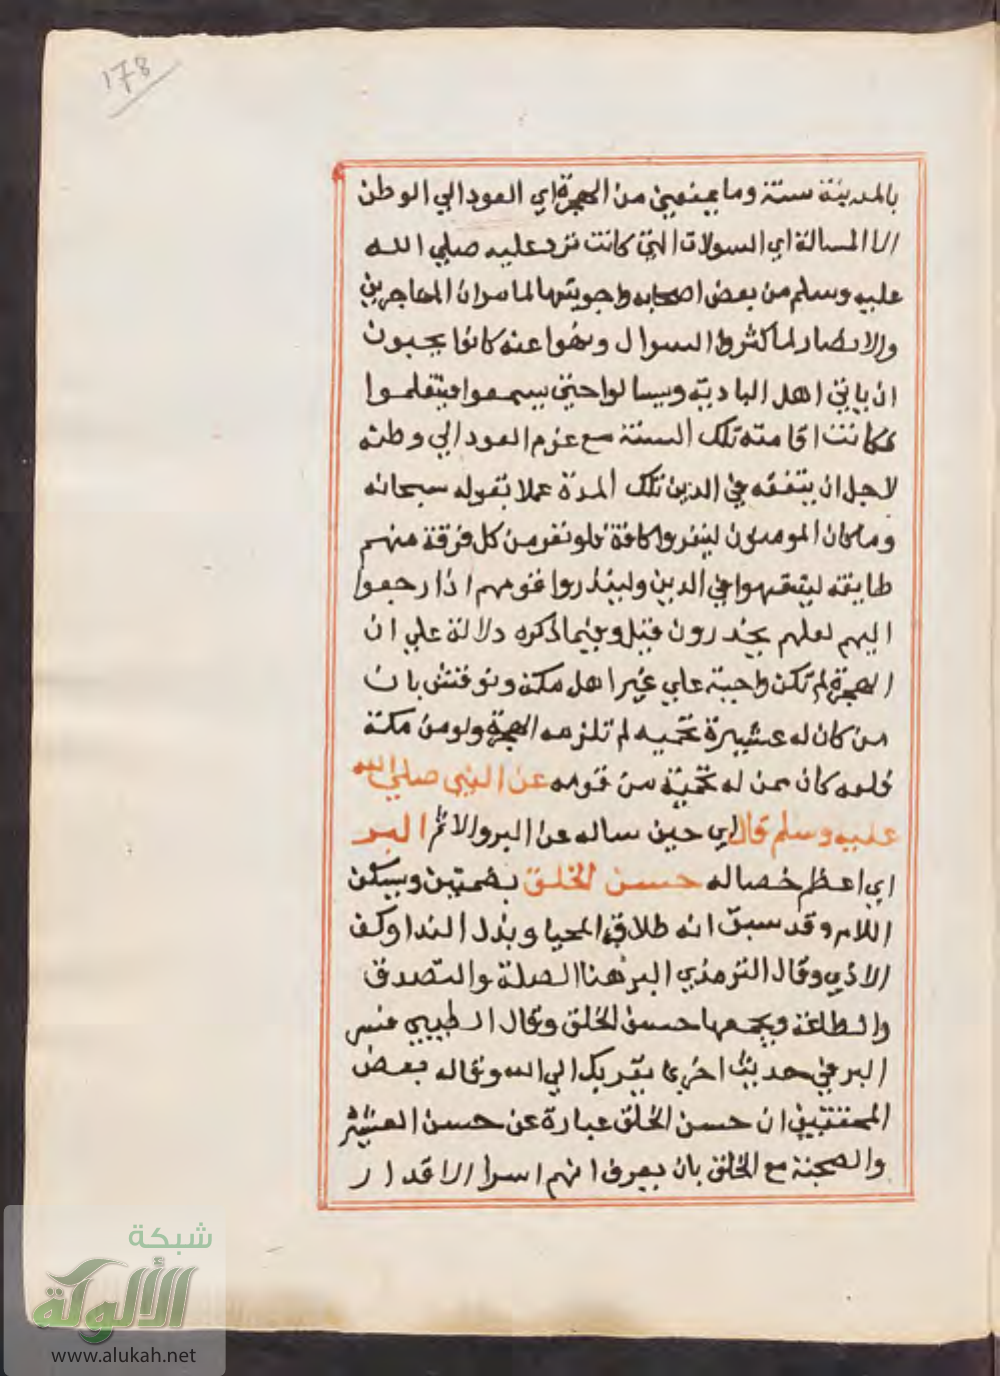 178
بالمدينة سنة وما يمنعني من الهجرة اي العود الي الوطن
الا المسالة اي السولات التي كانت ترد عليه صلي الله
عليه وسلم من بعض اصحابه واجوبتها لما مر ان المهاجرين
والانصار لما كثروا السوال ونهوا عنه كانوا يحبون
ان ياتي اهل البادية ويسالوا حتي يسمعوا فيتعلموا
فكانت اقامته تلك السنة مع عزم العود الي وطنه
لاجل ان يتفقه في الدين تلك المدة عملا بقوله سبحانه
وما كان المومنون لينفروا كافة فلو نفر من كل فرقة منهم
طايفة ليتفقهوا في الدين ولينذروا قومهم اذا رجعوا
اليهم لعلهم يحذرون قيل وفيما ذكره دلالة علي ان
الهجرة لم تكن واجبة علي غير اهل مكة ونوقش بان
من كان له عشيرة تحميه لم تلزمه الهجرة ولو من مكة
فلعله كان ممن له تحمية من قومه عن النبي صلي الله
عليه وسلم قال اي حين ساله عن البر والاثم البر
اي اعظم خصاله حسن الخلق بضمتين ويسكن
اللام وقد سبق انه طلاقة المحيا وبذل الندا وكف
الاذي وقال الترمذي البر هنا الصلة والتصدق
والطاعة ويجمعها حسن الخلق وقال الطيبي فسر
البر في حديث اخر بما يقربك الي الله وقاله بعض
المحققين ان حسن الخلق عبارة عن حسن العشرة
والصحبة مع الخلق بان يعرف انهم اسرا الاقدار
شبكة
الألوكة
www.alukah.net